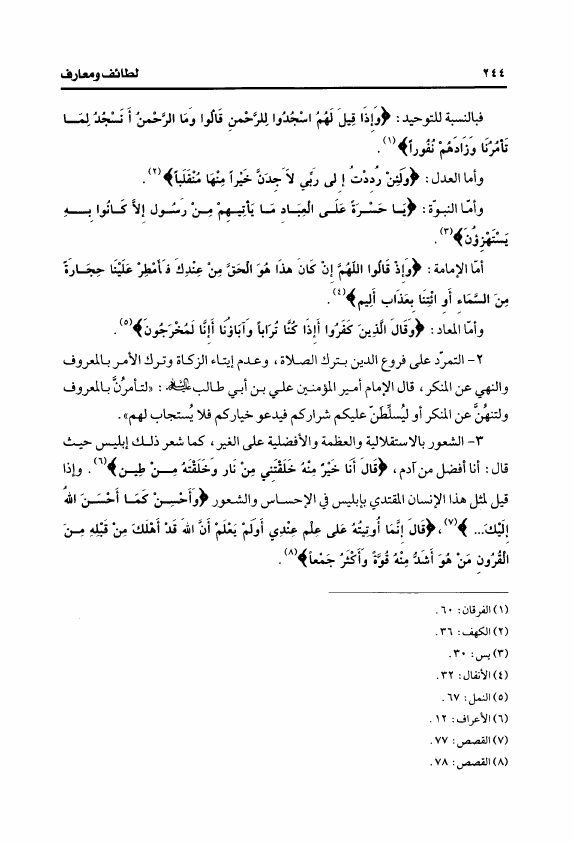 ٢٤٤ لطائف ومعارف
فبالنسبة للتوحيد: ﴿وَإِذَا قِيلَ لَهُمُ اسْجُدُوا لِلرَّحْمنِ قَالُوا وَمَا الرَّحْمنُ أَنَسْجُدُ لِمَـا
تَأْمُرُنَا وَزَادَهُمْ نُفُوراً﴾(١).
وأما العدل: ﴿وَلَئِنْ رُدِدْتُ إلى رَبِّي لأَجِدَنَّ خَيْراً مِنْهَا مُنْقَلَباً﴾(٢).
وأمّا النبوّة: ﴿يَـا حَسْـرَةً عَلَـى الْعِبَـادِ مَـا يَأْتِيـهِمْ مِـنْ رَسُـولٍ إلاَّ كَـانُوا بِـــهِ
يَسْتَهْزِؤُنَ﴾(٣).
أمّا الإمامة: ﴿وَإِذْ قَالُوا اللَّهُمَّ إنْ كَانَ هذَا هُوَ الْحَقَّ مِنْ عِنْدِكَ فَأَمْطِرْ عَلَيْنَا حِجَـارَةً
مِنَ السَّمَاءِ أَوِ ائْتِنَا بِعَذَابٍ أَلِيمٍ﴾(٤).
وأمّا المعاد: ﴿وَقَالَ الَّذِينَ كَفَرُوا أَإِذَا كُنَّا تُرَاباً وَآبَاؤُنَا أَإِنَّا لَمُخْرَجُونَ﴾(٥).
٢- التمرّد على فروع الدين بـترك الصـلاة، وعـدم إيتاء الزكـاة وترك الأمـر بـالمعروف
والنهي عن المنكر، قال الإمام أمـير المؤمنـين علـي بـن أبـي طـالب عليه السلام: «لتـأمرُنَّ بـالمعروف
ولتنهُنَّ عن المنكر أو ليُسلّطنّ عليكم شراركم فيدعو خياركم فلا يُستجاب لهم».
٣- الشعور بالاستقلالية والعظمة والأفضلية على الغير، كما شعر ذلـك إبليس حيـث
قال: أنا أفضل من آدم، ﴿قَالَ أَنَا خَيْرٌ مِنْهُ خَلَقْتَنِي مِنْ نَارٍ وَخَلَقْتَهُ مِـنْ طِيـنٍ﴾(٦). وإذا
قيل لمثل هذا الإنسان المقتدي بإبليس في الإحساس والشعور ﴿وَأَحْسِـنْ كَمَـا أَحْسَـنَ اللهُ
إِلَيْكَ... ﴾(٧)، ﴿قَالَ إنَّمَا أُوتِيتُهُ عَلَى عِلْمٍ عِنْدِي أَوَلَمْ يَعْلَمْ أَنَّ اللهَ قَدْ أَهْلَكَ مِنْ قَبْلِهِ مِـنَ
الْقُرُونِ مَنْ هُوَ أَشَدُّ مِنْهُ قُوَّةً وَأَكْثَرُ جَمْعاً﴾(٨).
(١) الفرقان: ٦٠.
(٢) الكهف: ٣٦.
(٣) يس: ٣٠.
(٤) الأنفال: ٣٢.
(٥) النمل: ٦٧.
(٦) الأعراف: ١٢.
(٧) القصص: ٧٧.
(٨) القصص: ٧٨.